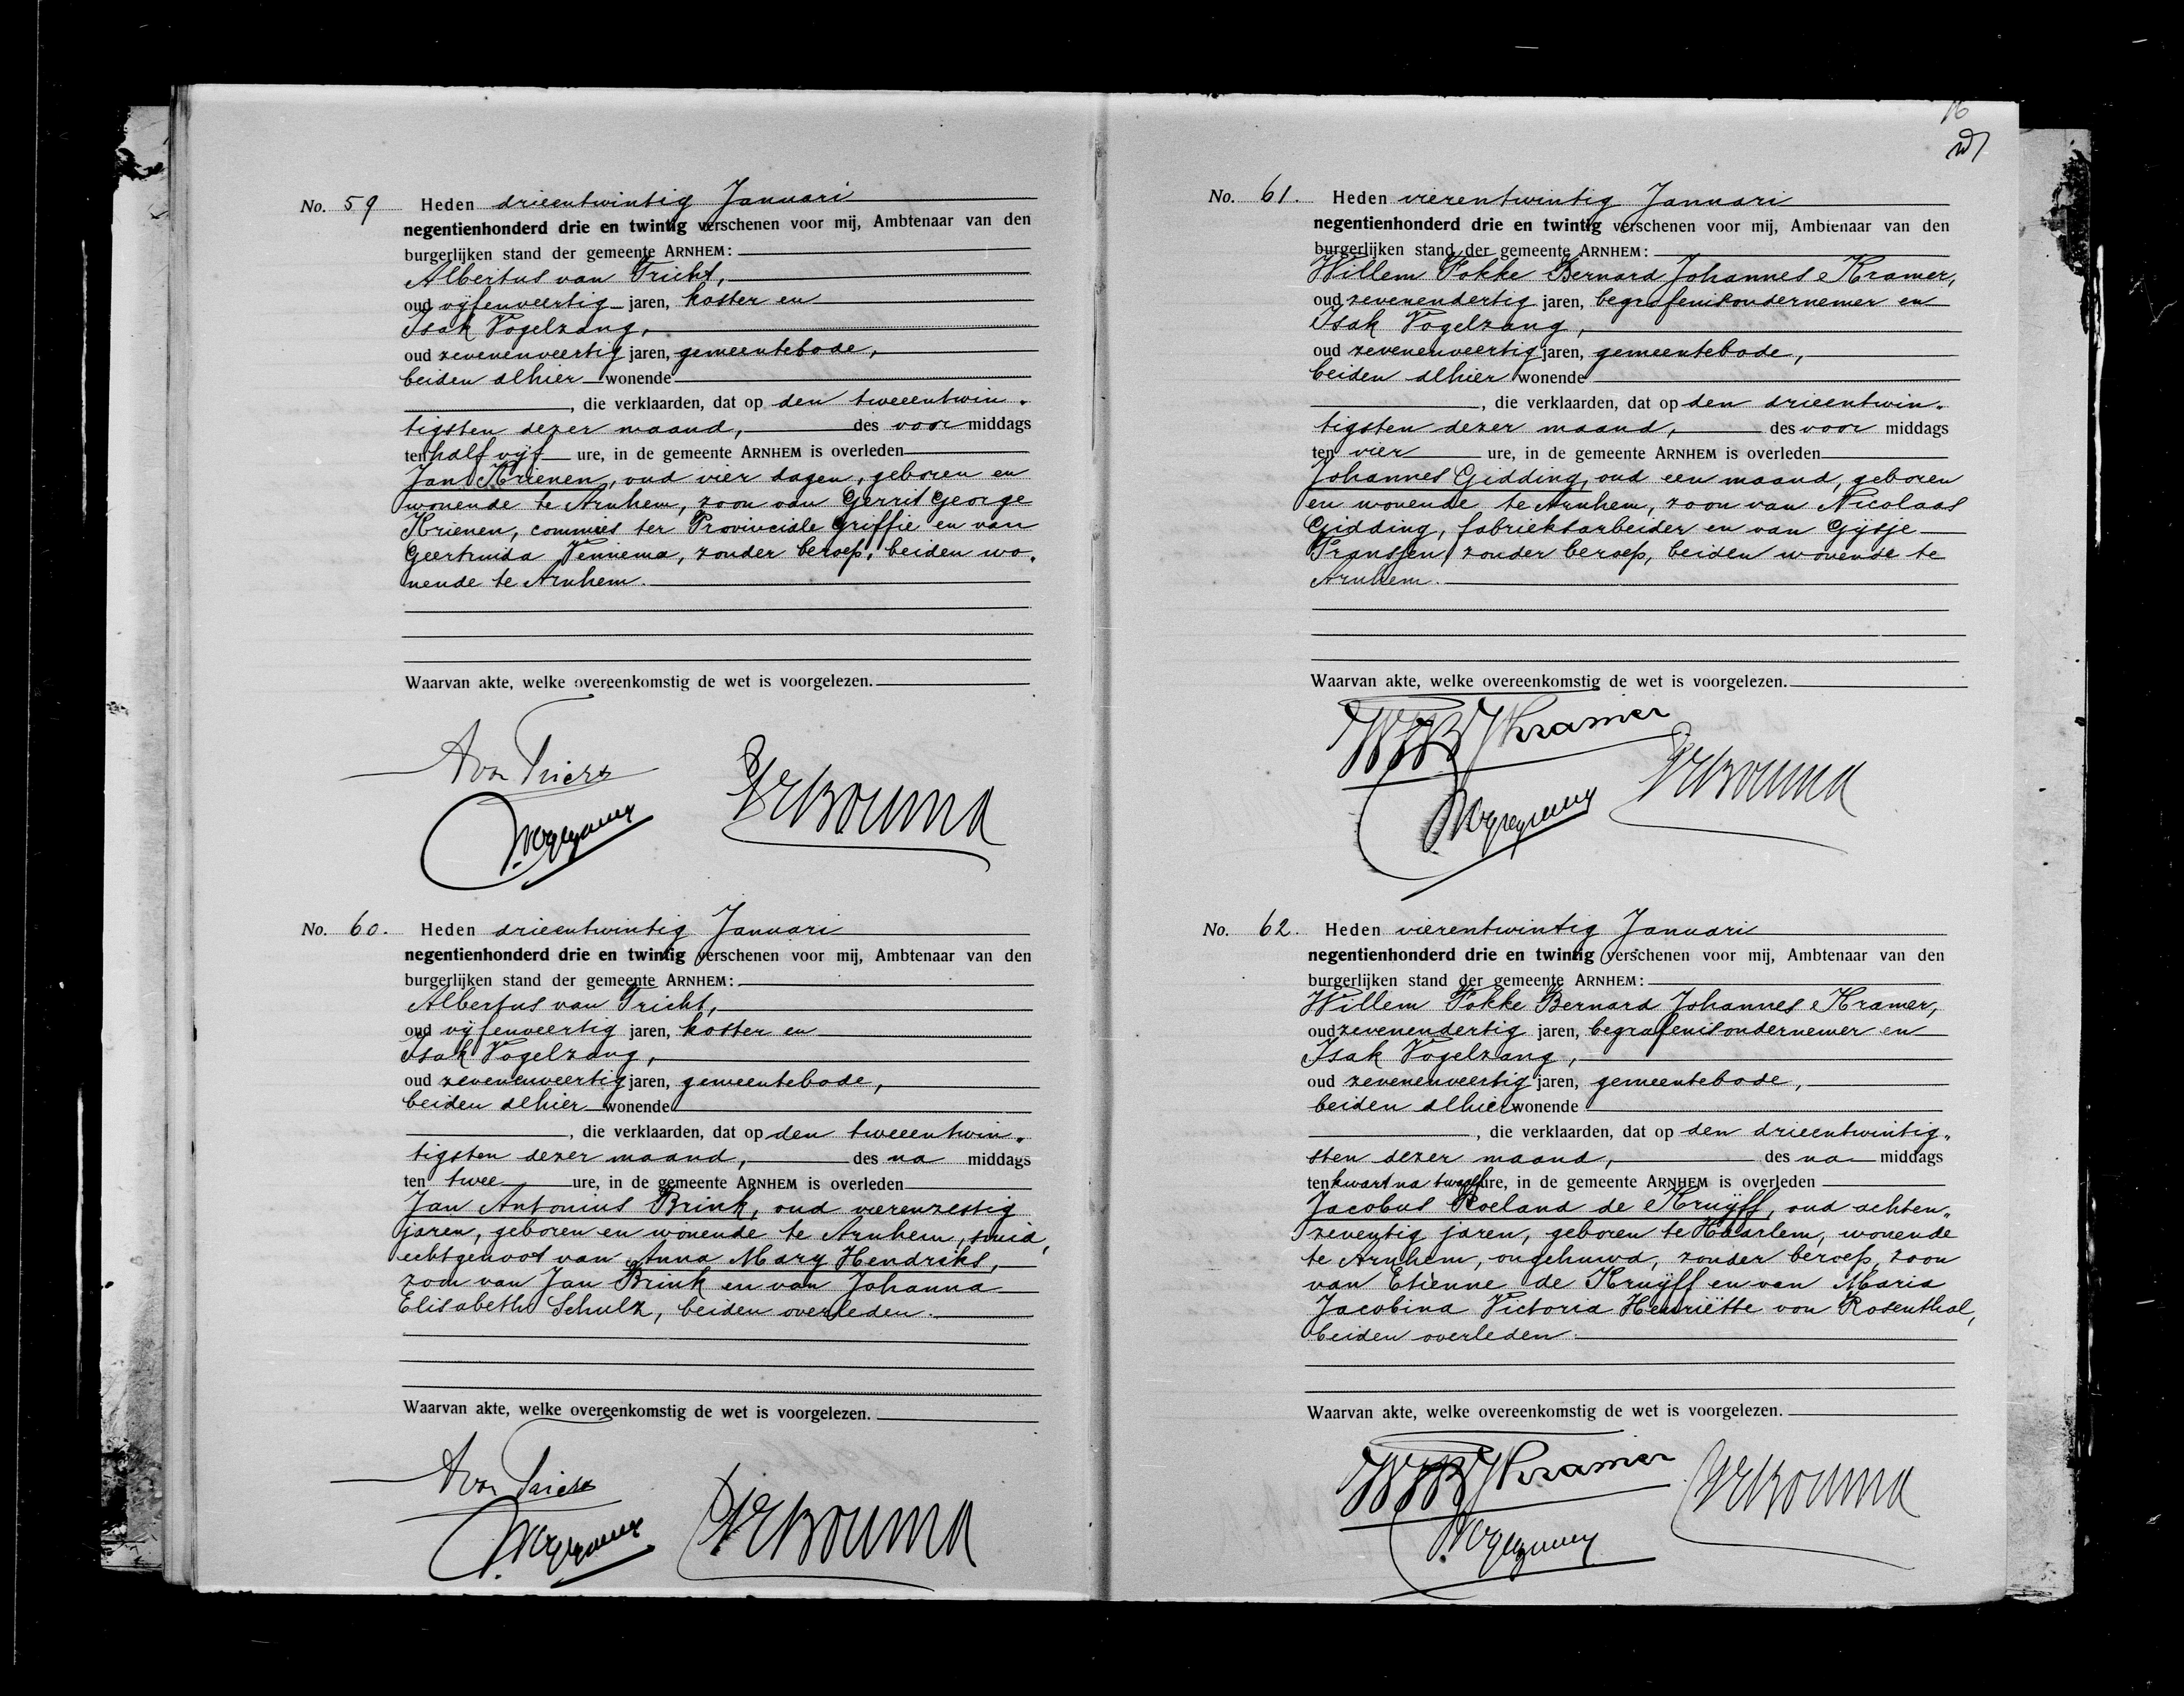 16
No. 59 Heden drieentwintig Januari
negentienhonderd drie en twintig verschenen voor mij, Ambtenaar van den
burgerlijken stand der gemeente ARNHEM:
Albertus van Tricht,
oud vijfenveertig jaren, koster en
Isak Vogelzang,
oud zevenenveertig jaren, gemeentebode,
beiden alhier wonende
, die verklaarden, dat op den tweeentwin„
tigsten dezer maand, des voor middags
ten half vijf ure, in de gemeente ARNHEM is overleden
Jan Krienen, oud vier dagen, geboren en
wonende te Arnhem, zoon van Gerrit George
Krienen, commies ter Provinciale Griffie en van
Geertruida Venniema, zonder beroep, beiden wo„
nende te Arnhem.
Waarvan akte, welke overeenkomstig de wet is voorgelezen.
A van Tricht
Vogelzang
Bouma
No. 60. Heden drieentwintig Januari
negentienhonderd drie en twintig verschenen voor mij, Ambtenaar van den
burgerlijken stand der gemeente ARNHEM:
Albertus van Tricht,
oud vijfenveertig jaren, koster en
Isak Vogelzang,
oud zevenenveertig jaren, gemeentebode,
beiden alhier wonende
, die verklaarden, dat op den tweeentwin„
tigsten dezer maand, des na middags
ten twee ure, in de gemeente ARNHEM is overleden
Jan Antonius Brink, oud vierenzestig
jaren, geboren en wonende te Arnhem, smid,
echtgenoot van Anna Mary Hendriks,
zoon van Jan Brink en van Johanna
Elisabeth Schulz, beiden overleden.
Waarvan akte, welke overeenkomstig de wet is voorgelezen.
A van Tricht
Vogelzang
Bouma
No. 61. Heden vierentwintig Januari
negentienhonderd drie en twintig verschenen voor mij, Ambtenaar van den
burgerlijken stand der gemeente ARNHEM:
Willem Fokke Bernard Johannes Kramer,
oud zevenendertig jaren, begrafenisondernemer en
Isak Vogelzang,
oud zevenenveertig jaren, gemeentebode,
beiden alhier wonende
, die verklaarden, dat op den drieentwin„
tigsten dezer maand, des voor middags
ten vier ure, in de gemeente ARNHEM is overleden
Johannes Gidding, oud een maand, geboren
en wonende te Arnhem, zoon van Nicolaas
Gidding, fabrieksarbeider en van Gijsje
Franssen, zonder beroep, beiden wonende te
Arnhem.
Waarvan akte, welke overeenkomstig de wet is voorgelezen.
WFBJKramer
Vogelzang
Bouma
No. 62. Heden vierentwintig Januari
negentienhonderd drie en twintig verschenen voor mij, Ambtenaar van den
burgerlijken stand der gemeente ARNHEM:
Willem Fokke Bernard Johannes Kramer,
oud zevenendertig jaren, begrafenisondernemer en
Isak Vogelzang,
oud zevenenveertig jaren, gemeentebode,
beiden alhier wonende
, die verklaarden, dat op den drieentwintig„
sten dezer maand, des na middags
ten kwart na twaalf ure, in de gemeente ARNHEM is overleden
Jacobus Roeland de Kruijff, oud achten„
zeventig jaren, geboren te Haarlem, wonende
te Arnhem, ongehuwd, zonder beroep, zoon
van Etienne de Kruijff en van Maria
Jacobina Victoria Henriëtte von Rosenthal,
beiden overleden.
Waarvan akte, welke overeenkomstig de wet is voorgelezen.
WFBJKramer
Vogelzang
Bouma